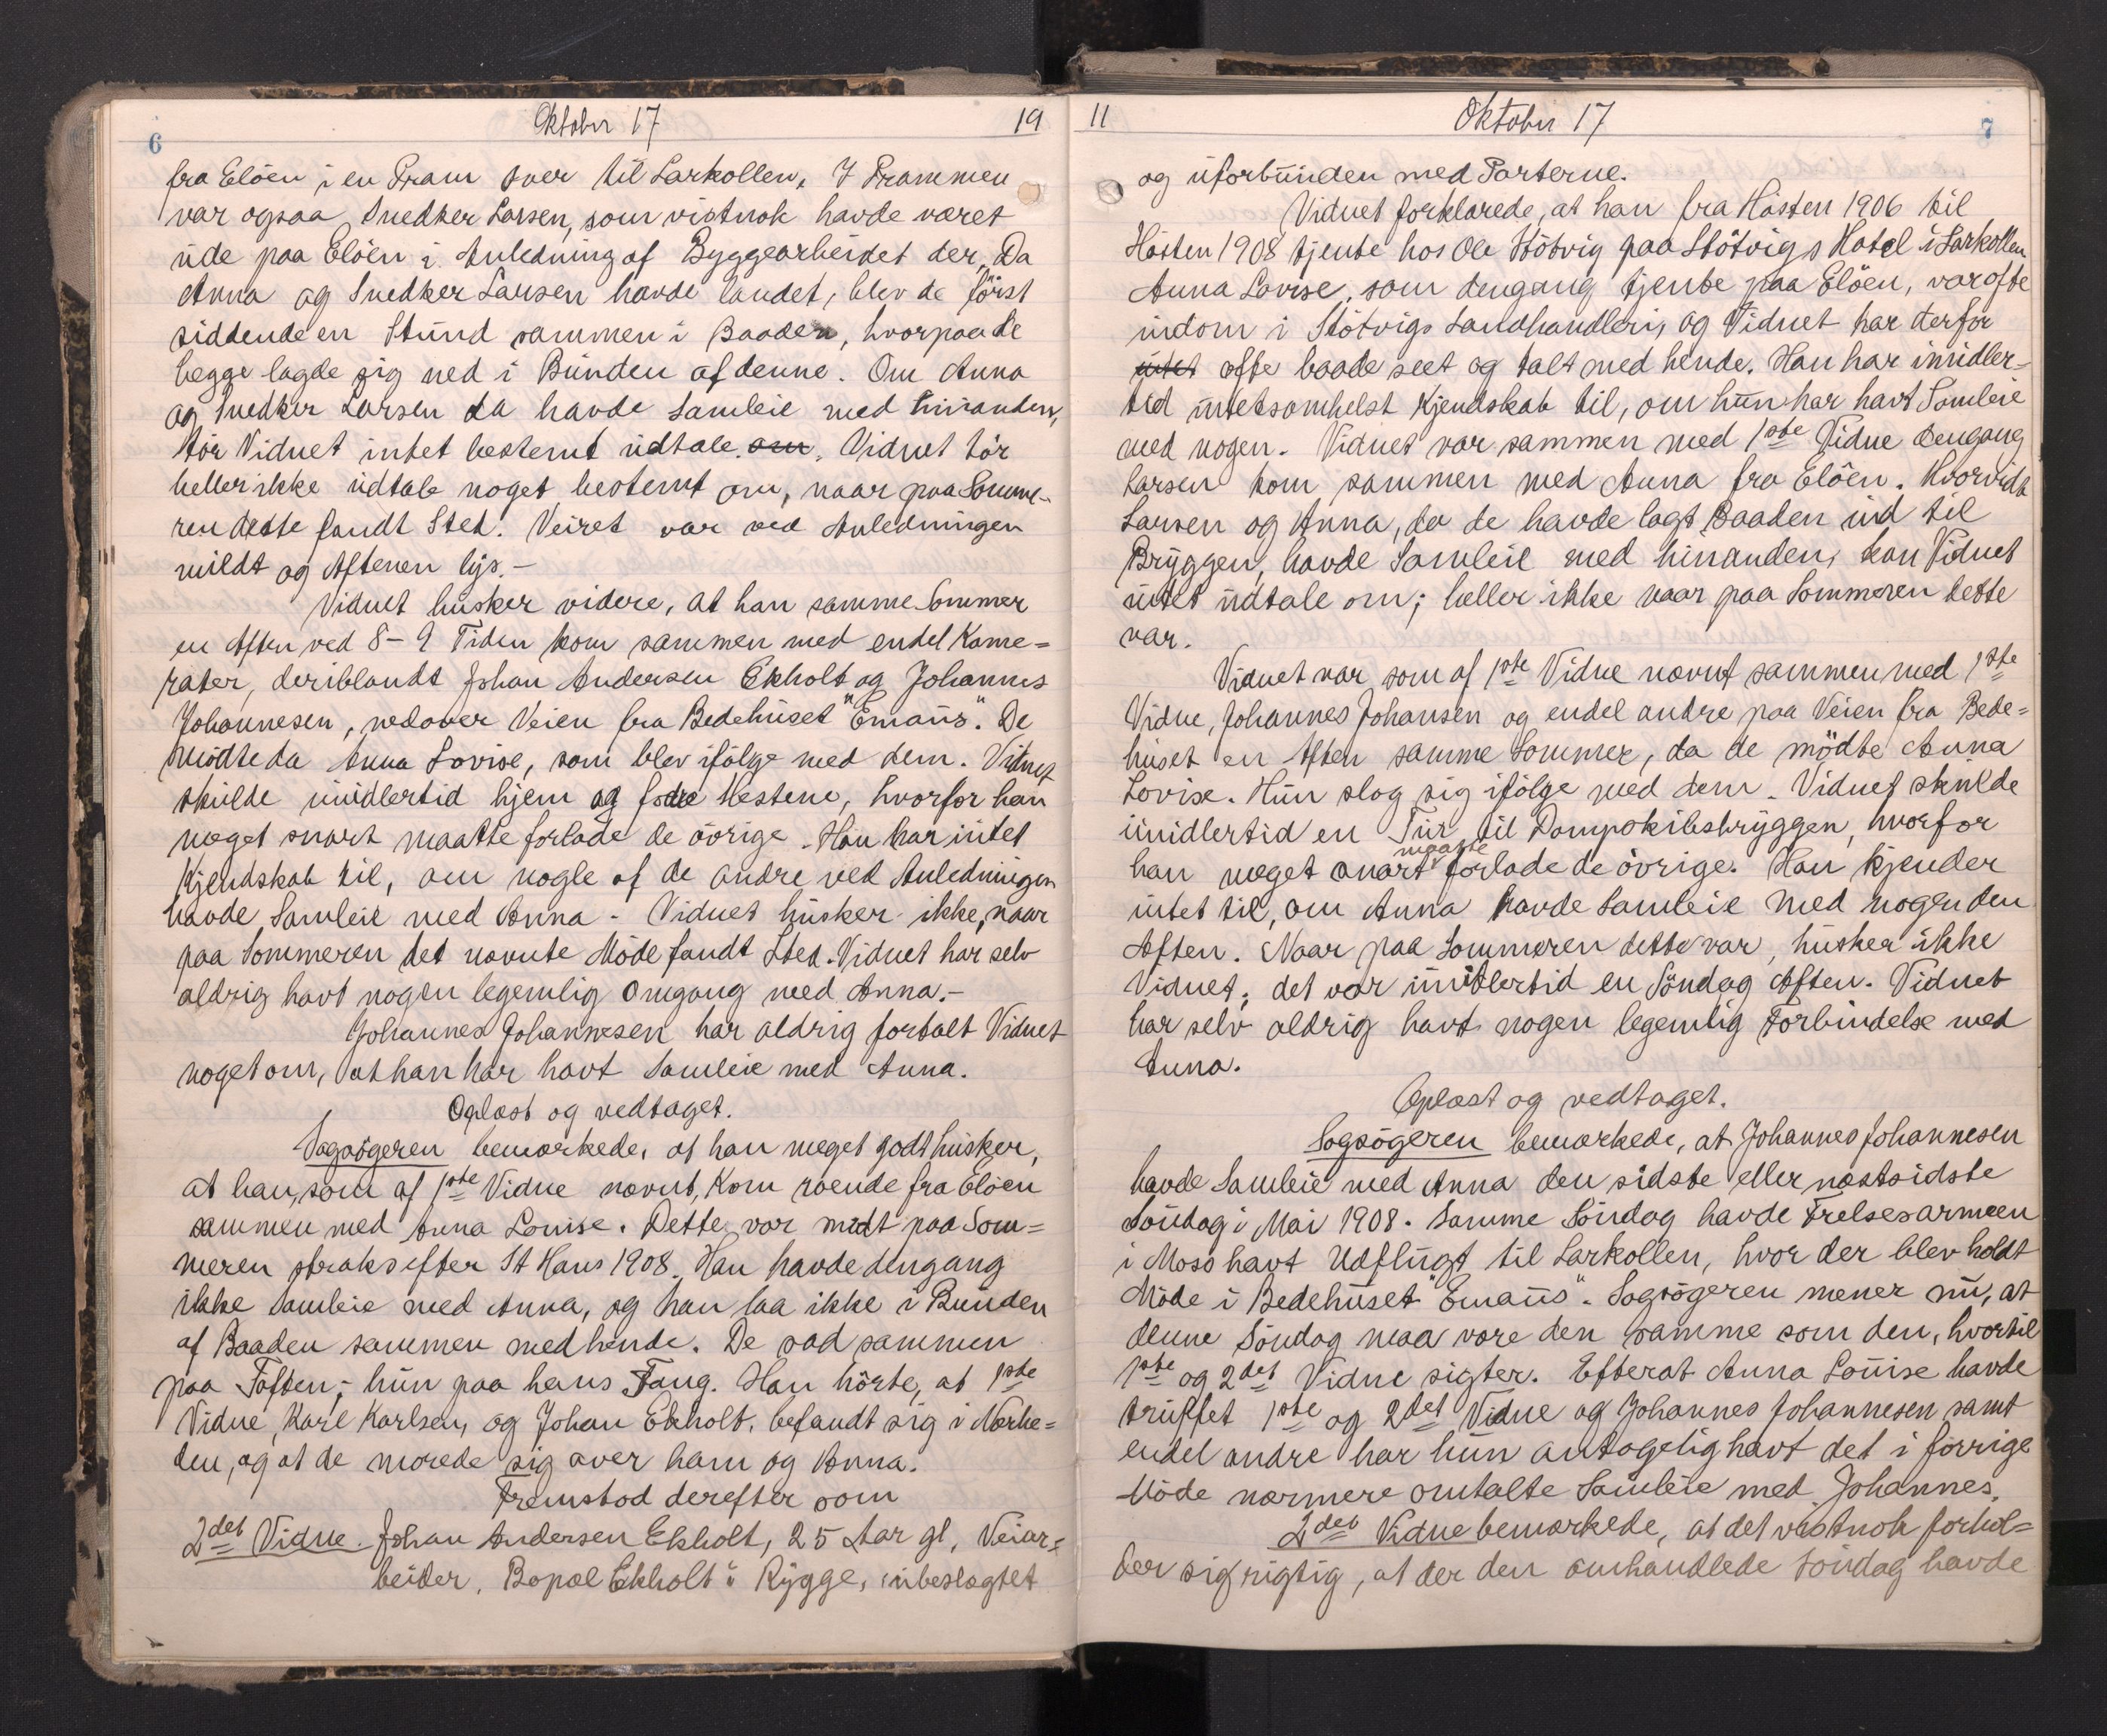 6
Oktober 17
19
fra Elöen i en Pram over til Larkollen. I Prammen
var ogsaa Snedker Larsen, som vistnok havde været
ude paa Elöen i Anledning af Byggearbeidet der. Da
Anna og Snedker Larsen havde landet, blev de först
siddende en Stund sammen i Baaden, hvorpaa de
begge lagde sig ned i Bunden af denne. Om Anna
og Snedker Larsen da havde Samleie med hinanden,
tör Vidnet intet bestemt udtale om. Vidnet tör
heller ikke udtale noget bestemt om, naar paa Somme-
ren dette fandt Sted. Veiret var ved Anledningen
mildt og Aftenen lys.-
Vidnet husker videre, at han samme Sommer
en Aften ved 8-9 Tiden kom sammen med endel Kame=
rater, deriblandt Johan Andersen Ekholt og Johannes
Johannesen, nedover Veien fra Bedehuset "Emaus". De
mödte da Anna Lovise, som blev ifölge med dem. Vidnet
skulde imidlertid hjem og fodre Hestene, hvorfor han
meget snart maatte forlade de övrige. Han har intet
Kjendskab til, om nogle af de andre ved Anledningen
havde Samleie med Anna - Vidnet husker ikke, naar
paa Sommeren det nævnte Möde fandt Sted. Vidnet har selv
aldrig havt nogen legemlig Omgang med Anna.-
Johannes Johannesen har aldrig fortalt Vidnet
noget om, at han har havt Samleie med Anna.
Oplæst og vedtaget.
Sagsögeren bemærkede, at han meget godt husker,
at han, som af 1ste Vidne nævnt, kom roende fra Elöen
sammen med Anna Louise. Dette var midt paa Som=
meren straks efter St Hans 1908. Han havde dengang
ikke Samleie med Anna, og han laa ikke i Bunden
af Baaden sammen med hende. De sad sammen
paa Toften; hun paa hans Fang. Han hörte, at 1ste
Vidne, Karl Karlsen, og Johan Ekholt, befandt sig i Nærhe=
den, og at de morede sig over ham og Anna.
Fremstod derefter som
2det Vidne. Johan Andersen Ekholt, 25 Aar gl, Veiar=
beider. Bopæl Ekholt i Rygge, ubeslægtet
11
Oktober 17
7
og uforbunden med Parterne.
Vidnet forklarede, at han fra Hösten 1906 til
Hösten 1908 tjente hos Ole Stötvig paa Stötvigs Hotel i Larkollen
Anna Lovise, som dengang tjente paa Elöen, var ofte
indom i Stötvigs Landhandleri, og Vidnet har derfor
intet ofte baade seet og talt med hende. Han har imidler=
tid intetsomhelst Kjendskab til, om hun har havt Samleie
med nogen. Vidnet var sammen med 1ste Vidne dengang
Larsen kom sammen med Anna fra Elöen. Hvorvidt
Larsen og Anna, da de havde lagt Baaden ind til
Bryggen, havde Samleie med hinanden, kan Vidnet
intet udtale om; heller ikke naar paa Sommeren dette
var.
Vidnet var som af 1ste Vidne nævnt sammen med 1ste
Vidne, Johannes Johansen og endel andre paa Veien fra Bede=
huset en Aften samme Sommer, da de mödte Anna
Lovise. Hun slog sig ifölge med dem. Vidnet skulde
imidlertid en Tur til Dampskibsbryggen, hvorfor
han meget snart maatte forlade de övrige. Han kjender
intet til, om Anna havde Samleie med nogen den
Aften. Naar paa Sommeren dette var, husker ikke
Vidnet; det var imidlertid en Söndag Aften. Vidnet
har selv aldrig havt nogen legemlig Forbindelse med
Anna.
Oplæst og vedtaget.
Sagsögeren bemærkede, at Johannes Johannesen
havde Samleie med Anna den sidste eller næstsidste
Söndag i Mai 1908. Samme Söndag havde Frelsesarmeen
i Moss havt Udflugt til Larkollen, hvor der blev holdt
Möde i Bedehuset "Emaus". Sagsögeren mener nu, at
denne Söndag maa være den samme som den, hvortil
1ste og 2det Vidne sigter. Efterat Anna Louise havde
truffet 1ste og 2det Vidne og Johannes Johannesen samt
endel andre har hun antagelig havt det i forrige
Möde nærmere omtalte Samleie med Johannes.
2det Vidne bemærkede, at det vistnok forhol=
der sig rigtig, at der den omhandlede Söndag havde